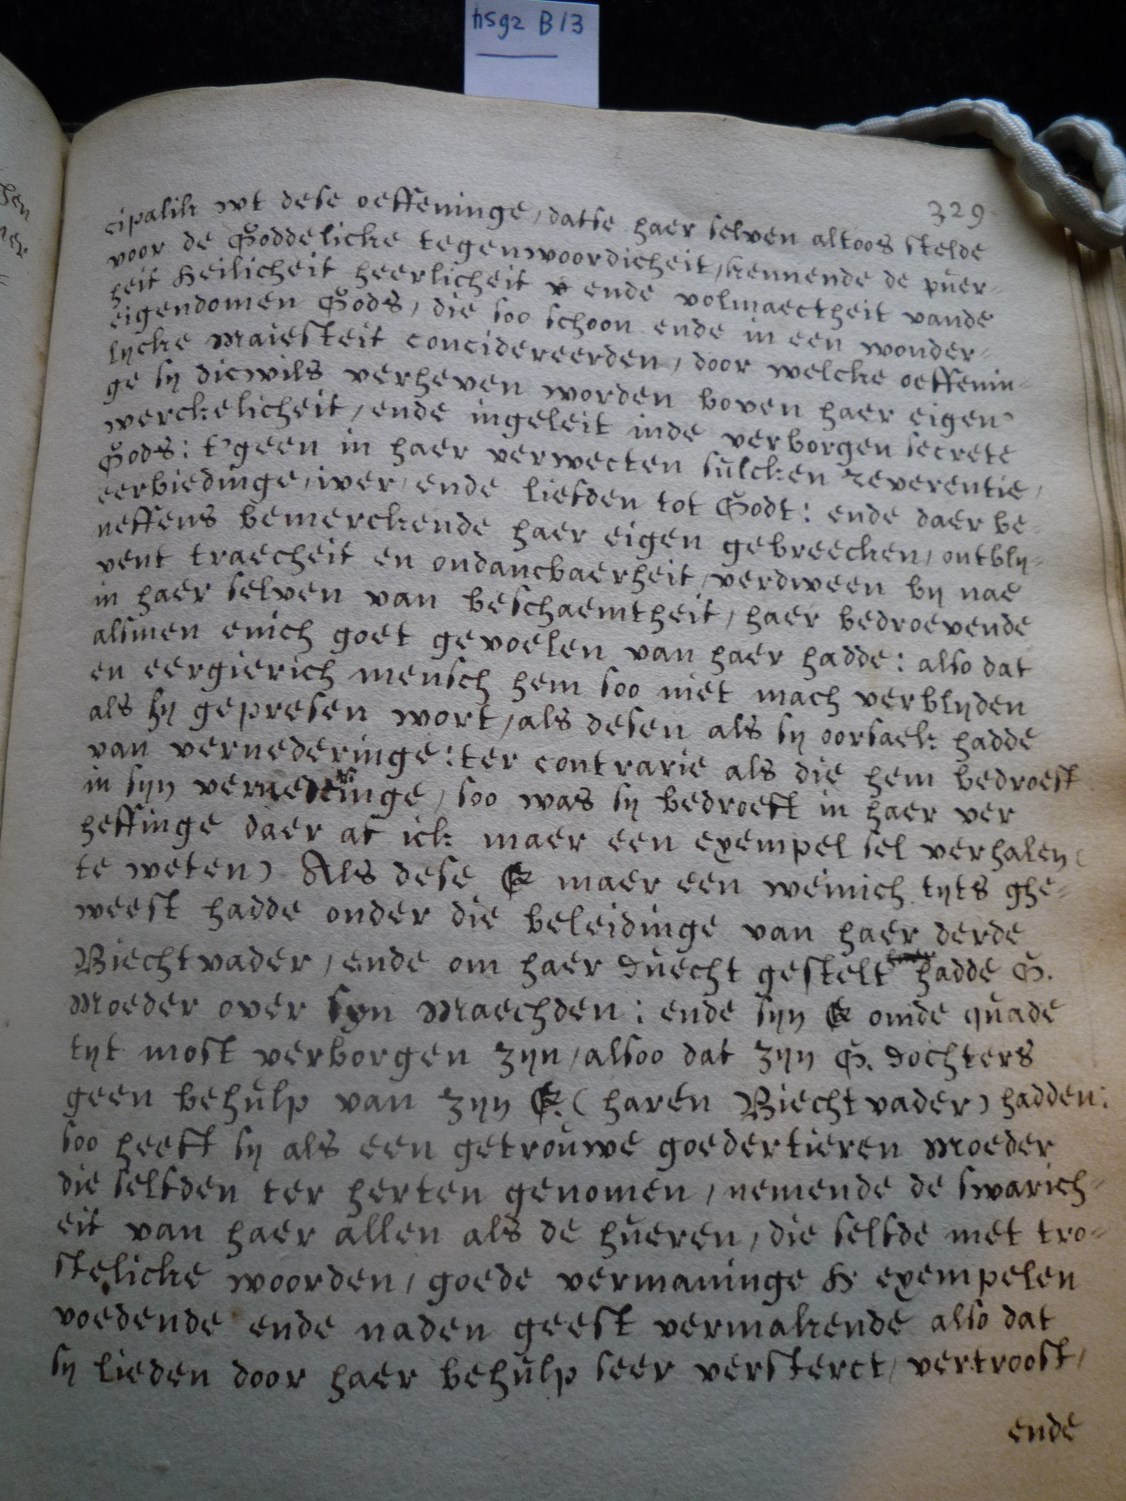 hsg2 B13
329
cipalik wt dese oeffeninge, datse haer selven altoos stelde
voor de Goddelicke tegenwoordicheit, kennende de puer-
heit Heilicheit heerlicheit ende volmaectheit vande
eigendomen Gods, die soo schoon ende in een wonder-
lycke Maiesteit concidereerden, door welcke oeffenin-
ge sy dicwils verheven worden boven haer eigen
werckelicheit, ende ingeleit inde verborgen secrete
Gods: t'geen in haer verwecten sulcken reverentie,
eerbiedinge, iver, ende liefden tot Godt: ende daer be-
neffens bemerckende haer eigen gebreecken, ontbly-
vent traecheit en ondancbaerheit, verdween by nae
in haer selven van beschaemtheit, haer bedroevende
alsmen enich goet gevoelen van haer hadde: also dat
en eergierich mensch hem soo niet mach verblyden
als hy gepresen wort, als desen als sy oorsaek hadde
van vernederinge: ter contrarie als die hem bedroeft
in syn vernederinge, soo was sy bedroeft in haer ver
heffinge daer af ick maer een exempel sel verhalen (
te weten) Als dese maer een weinich tyts ghe-
weest hadde onder die beleidinge van haer derde
Biechtvader, ende om haer duecht gestelt hadde G.
Moeder over syn Maechden: ende syn E omde quade
tyt most verborgen zyn, alsoo dat zyn G. dochters
geen behulp van zyn E. (haren Biechtvader) hadden:
soo heeft sy als een getrouwe goedertieren Moeder
die selfden ter herten genomen, nemende de swarich-
eit van haer allen als de hueren, die selfde met tro-
stelicke woorden, goede vermaninge exempelen
voedende ende naden geest vermakende also dat
sy lieden door haer behulp seer versterct, vertroost,
ende